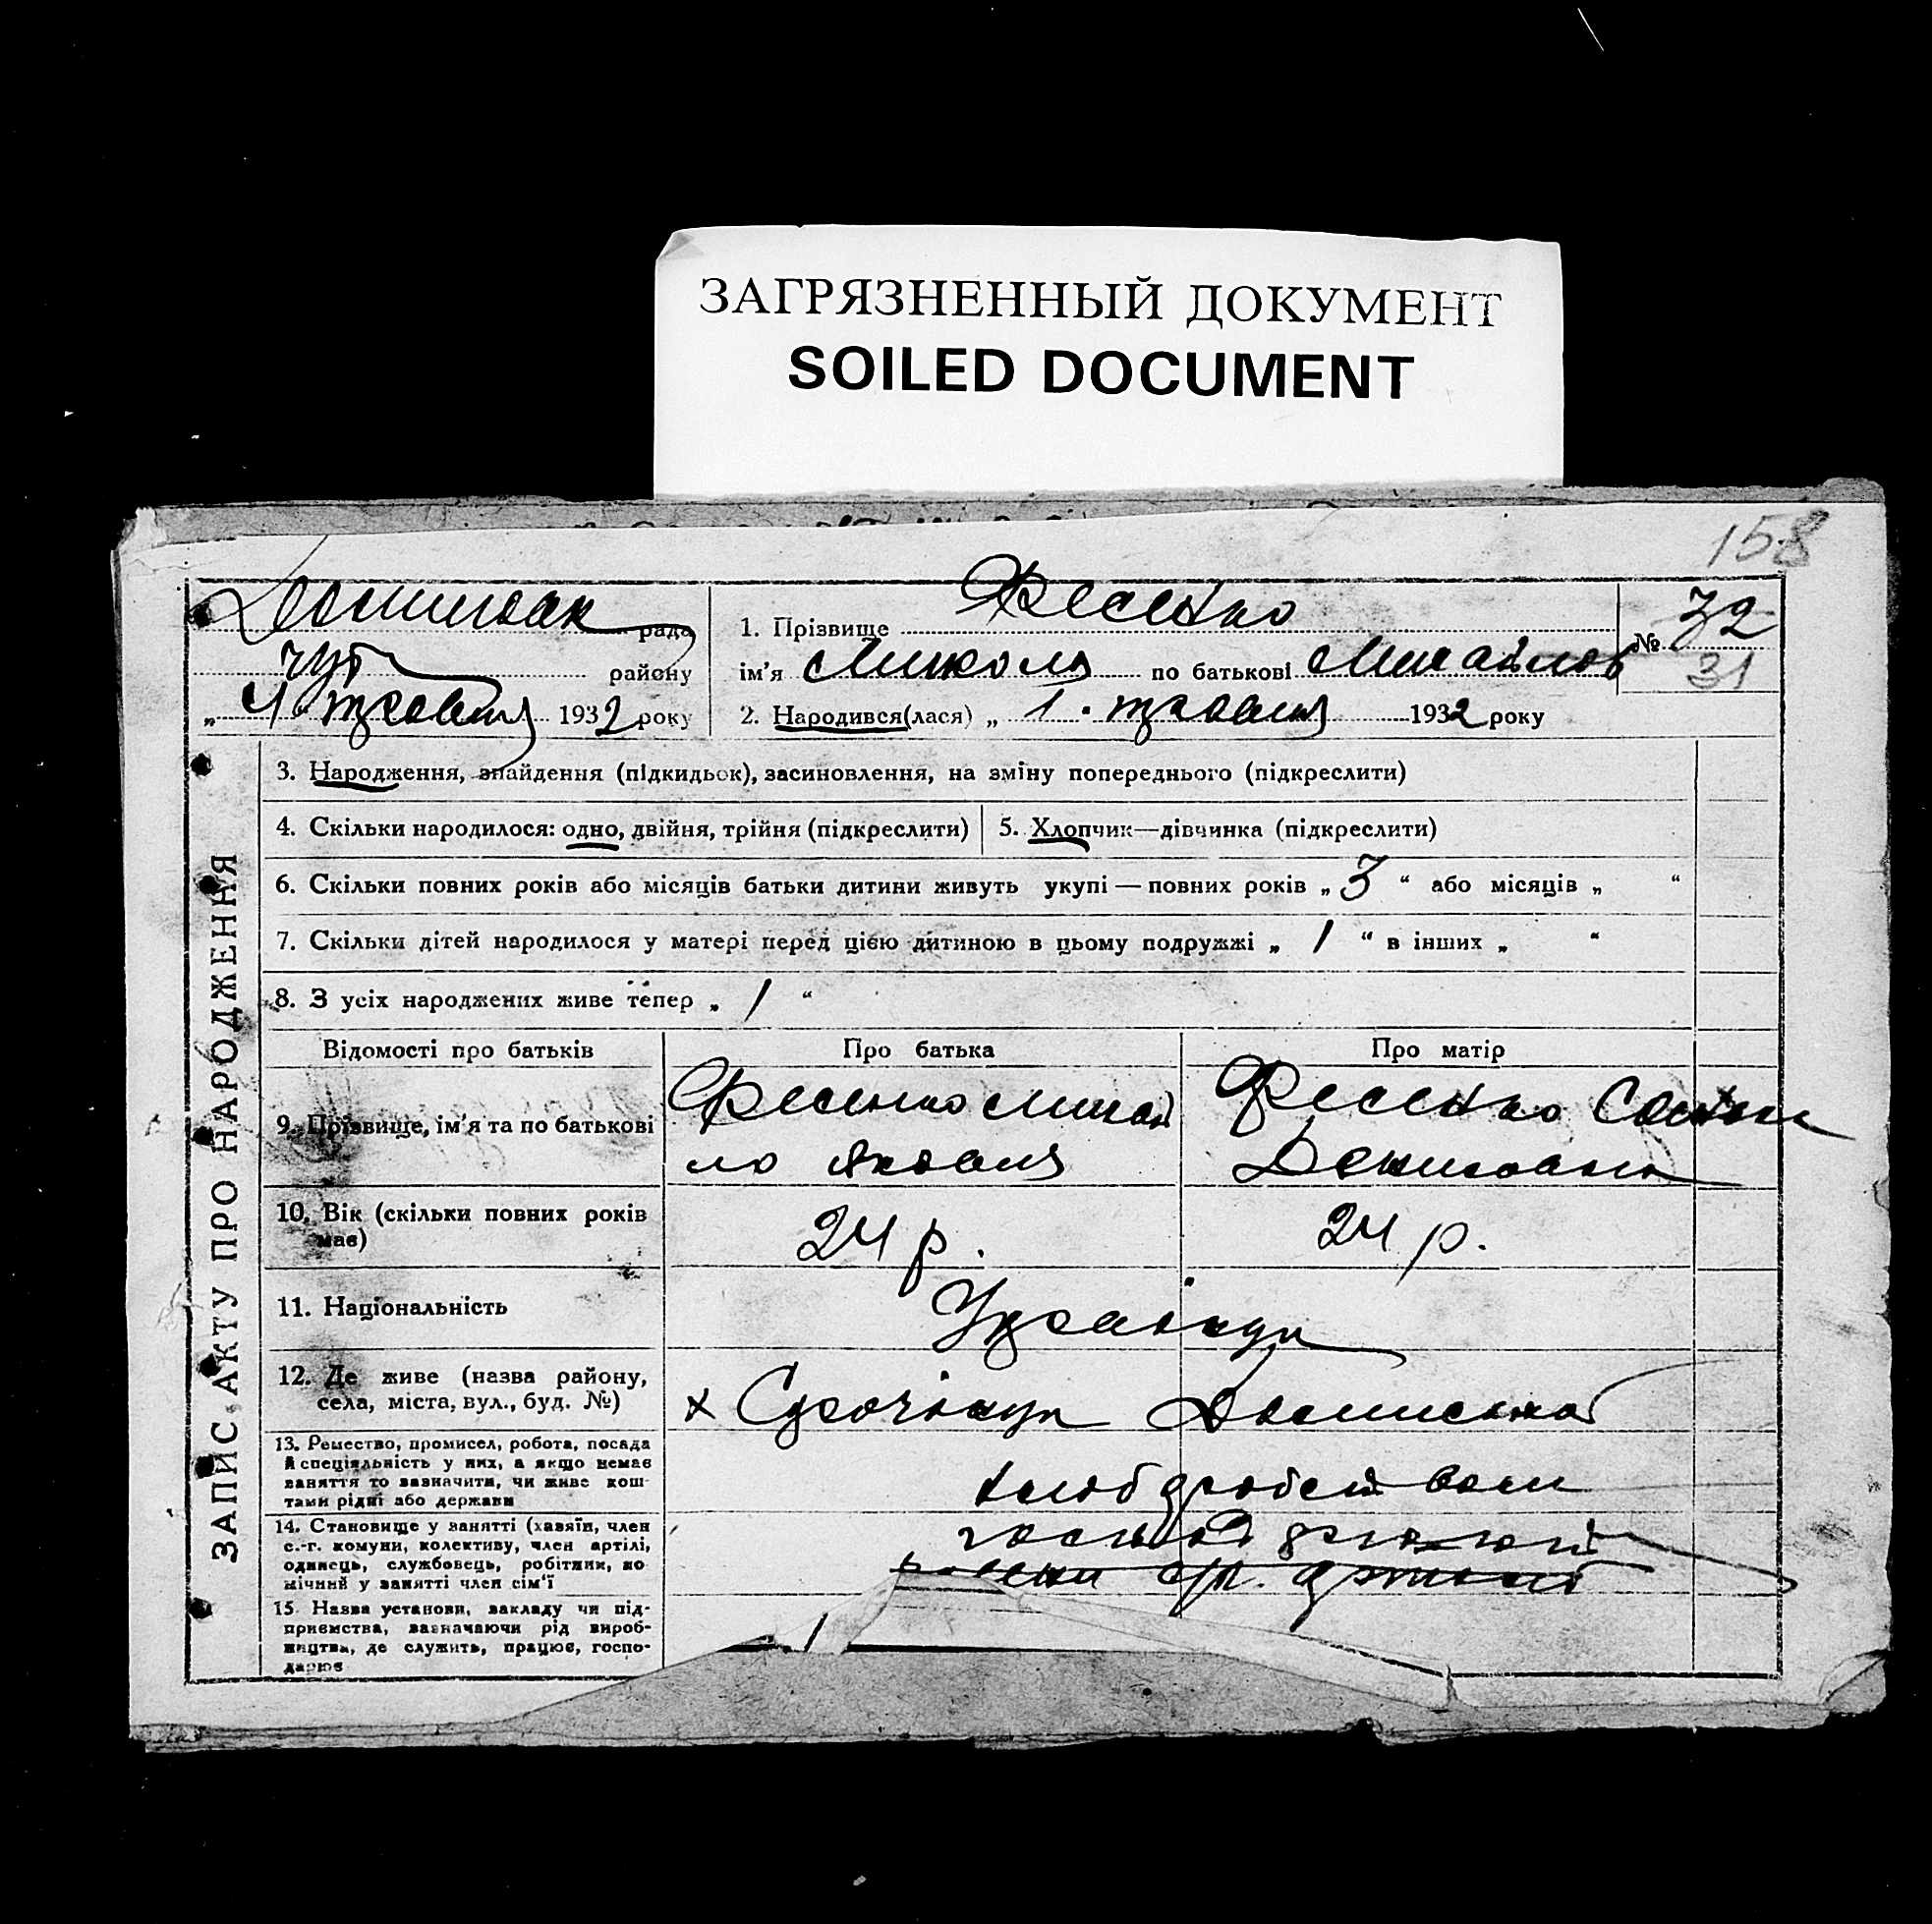 ЗАГРЯЗНЕННЫЙ ДОКУМЕНТ
SOILED DOCUMENT
158
рада
Чут району
„ 4 " травня 1932 року
1. Прізвище Фесенко
ім'я Микола по батькові Михайлов
2. Народився(лася) „ 1 . травня 1932 року
№ 32
31
ЗАПИС АКТУ ПРО НАРОДЖЕННЯ
3. Народження, знайдення (підкидьок), засиновлення, на зміну попереднього (підкреслити)
4. Скільки народилося: одно, двійня, трійня (підкреслити)
5. Хлопчик—дівчинка (підкреслити)
6. Скільки повних років або місяців батьки дитини живуть укупі — повних років „ 3 “ або місяців „ “
7. Скільки дітей народилося у матері перед цією дитиною в цьому подружжі „ 1 “ в інших „ “
8. З усіх народжених живе тепер „ 1 “
Відомості про батьків
Про батька
Про матір
9. Прізвище, ім'я та по батькові
Фесенко Михай
ло Яковля
Фесенко
Денисовна
10. Вік (скільки повних років
має)
24 р.
24 р.
11. Національність
Українці
12. Де живе (назва району,
села, міста, вул., буд. №)
х
13. Ремество, промисел, робота, посада
й спеціяльність у них, а якщо немає
заняття то зазначити, чи живе кош-
тами рідні або держави
хлібороб
14. Становище у занятті (хазяїн, член
с.-г. комуни, колективу, член артілі,
одинець, службовець, робітник, по
мічний у занятті член сім'ї
15. Назва установи, закладу чи під-
приємства, зазначаючи рід вироб-
ництва, де служить, працює, госпо-
дарює